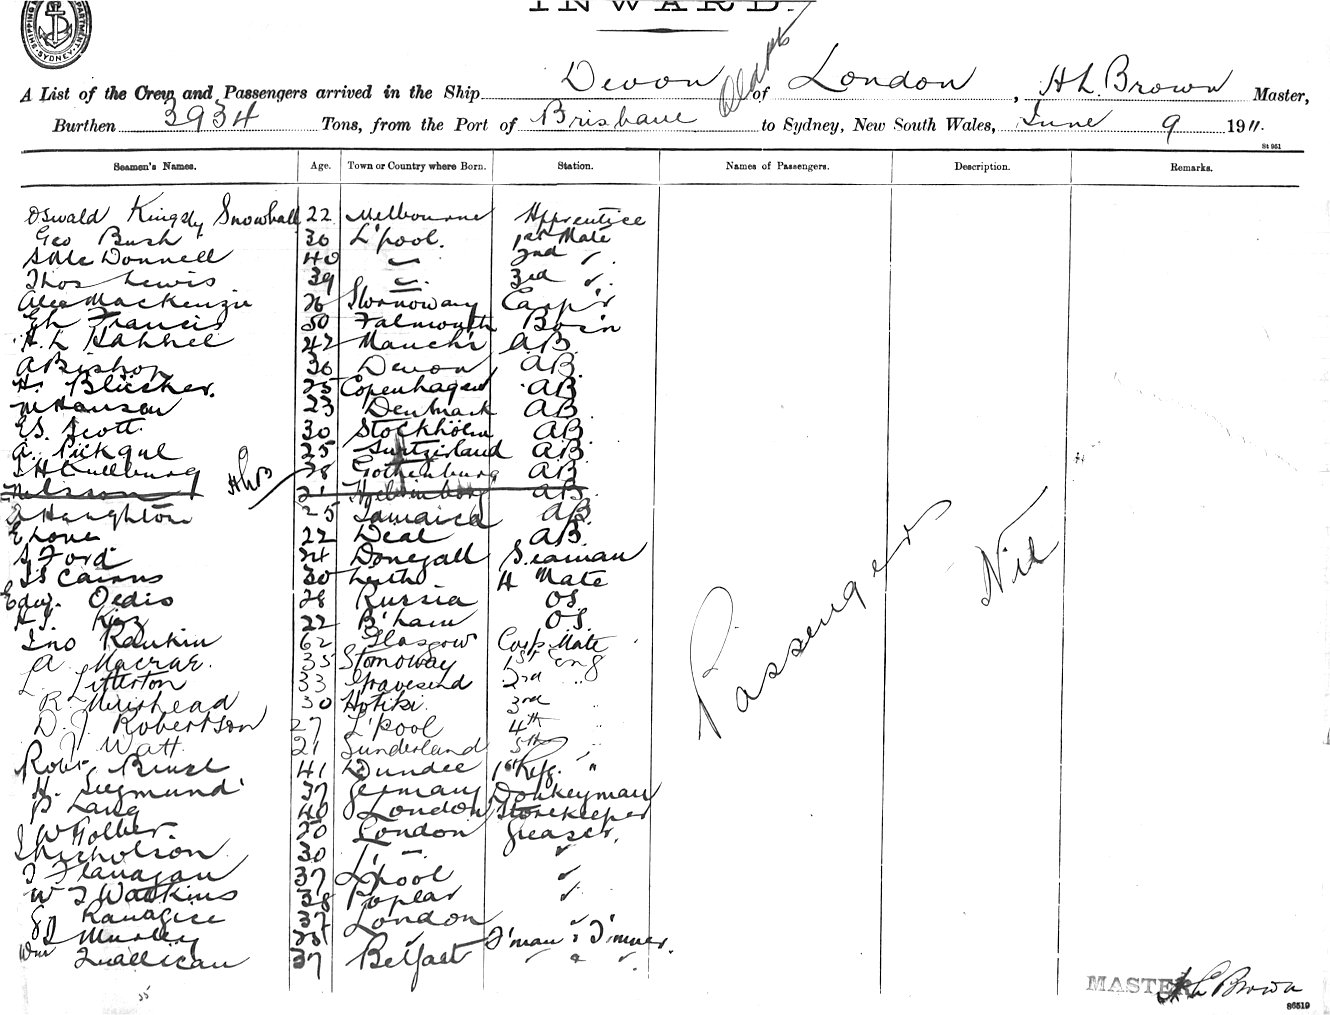 INWARD.
SHIPPING DEPARTMENT SYDNEY
A List of the Crew and Passengers arrived in the Ship Devon of London, H L. Brown Master,
Burthen 3934 Tons, from the Port of Brisbane to Sydney, New South Wales, June 9 1911.
St 951
Seamen's Names. Age. Town or Country where Born. Station. Names of Passengers. Description. Remarks.
Oswald Kingsly Snowball 22 Melbourne Apprentice
Geo Bush 30 L'pool. 1st Mate
McDonnell 40 " 2nd "
Thos Lewis 39 " 3rd "
Alec Mackenzie 26 Stornoway Carp'r
Francis 50 Falmouth Bos'n
H. L 42 Manch'r AB.
A Bishop 36 Devon AB.
H. Blücher. 25 Copenhagen AB
M Hansen 23 Denmark AB.
ES. Scott 30 Stockholm AB.
A. 25 Switzerland AB
28 Gothenburg AB
HLB
Nilsson 21 AB
Haughton 25 Jamaica AB
E Love 22 Deal AB.
Ford 24 Donegall Seaman
Cairns 30 Leith H Mate
Edw. Oedis 28 Russia OS.
King 22 B'ham OS.
Jno Rankin 62 Glasgow Carp. Mate
A. Macrae. 35 Stornoway 1st Eng
L. Litterton 33 Gravesend 2nd "
R. Muirhead 30 Hokiki 3rd "
D. J. Robertson 27 L'pool 4th "
J Watt 21 Sunderland 5th "
Robt. Bruce 41 Dundee 1st Refg. "
H. Siegmund 37 Germany Donkeyman
P Lang 40 London Storekeeper
W Holber. 20 London Greaser.
Nicholson 30 L' — "
J Flanagan 37 L'pool "
W J Watkins 38 Poplar "
Ranagice 37 London "
Murley " F'man & T'mmer.
Wm 37 Belfast " & "
Passengers Nil
35
MASTER H L Brown
86519